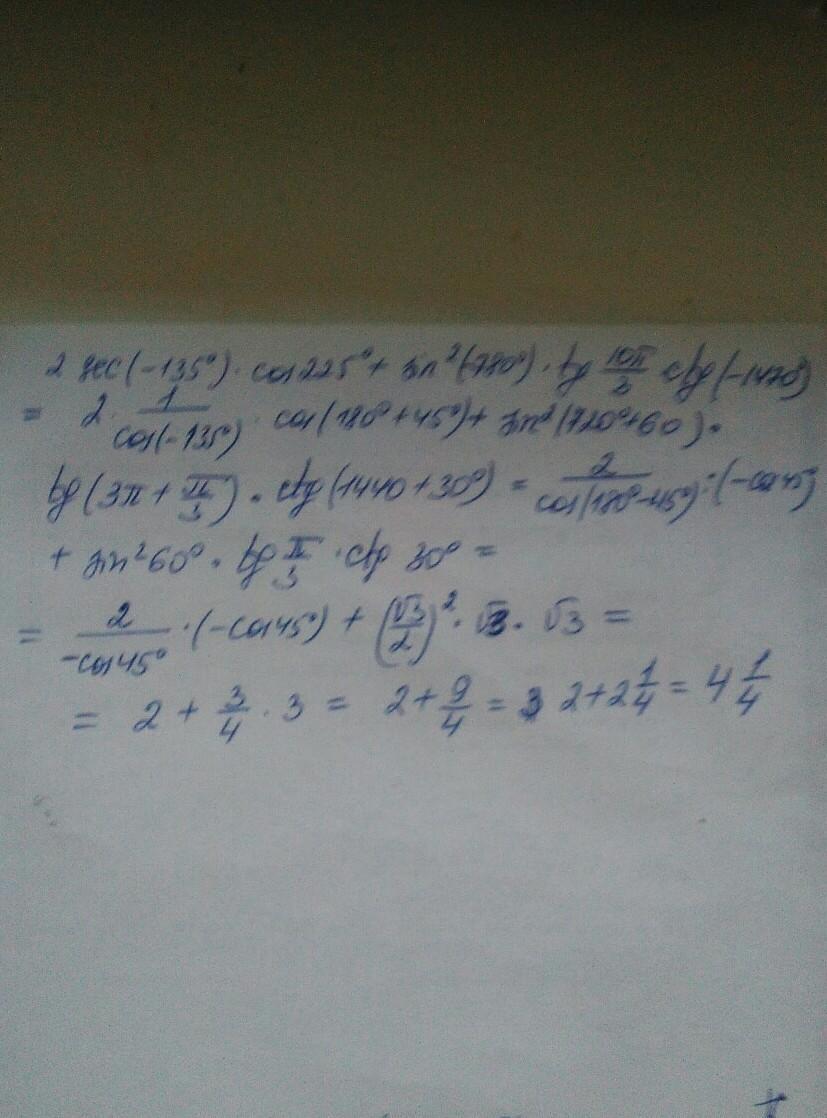 2 sec(-135°) · cos 225° + sin²(-780°) · tg 10π/3 ctg(-1470°)
= 2 · 1/cos(-135°) · cos(180° + 45°) + sin²(720° + 60) ·
tg(3π + π/3) · ctg(1440 + 30°) = 2/cos(180° - 45°) · (-cos 45°)
+ sin² 60° · tg π/3 · ctg 30° =
= 2/-cos 45° · (-cos 45°) + (√3/2)² · √3 · √3 =
= 2 + 3/4 · 3 = 2 + 9/4 = 2 + 2 1/4 = 4 1/4